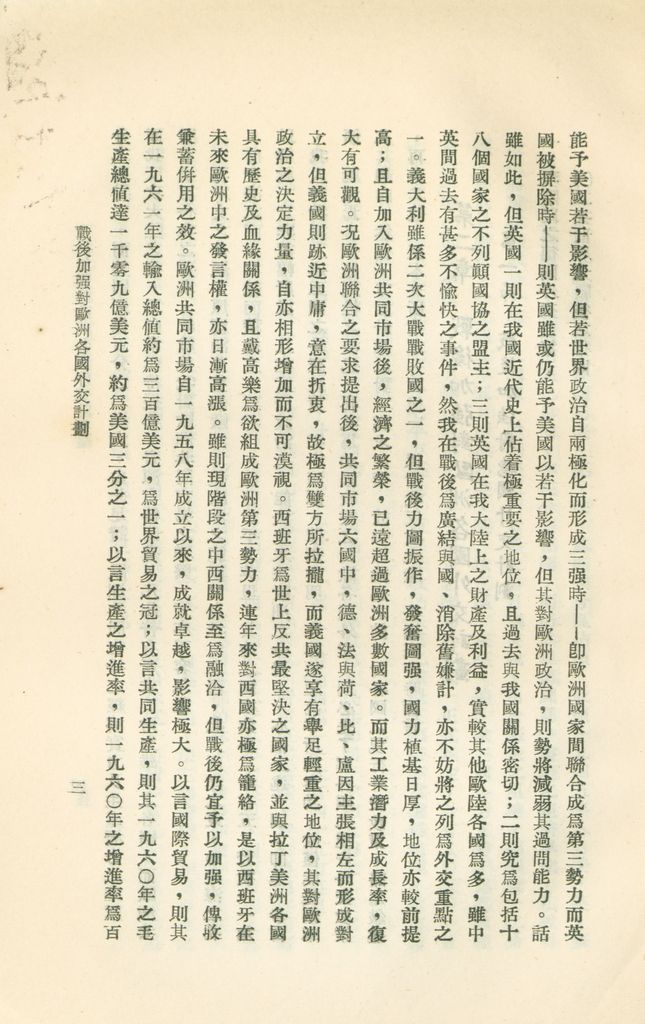 能予美國若干影響，但若世界政治自兩極化而形成三强時——卽歐洲國家間聯合成爲第三勢力而英
國被摒除時——則英國雖或仍能予美國以若干影響，但其對歐洲政治，則勢將減弱其過問能力。話
雖如此，但英國一則在我國近代史上佔着極重要之地位，且過去與我國關係密切；二則究爲包括十
八個國家之不列顚國協之盟主；三則英國在我大陸上之財產及利益，實較其他歐陸各國爲多，雖中
英間過去有甚多不愉快之事件，然我在戰後爲廣結與國、消除舊嫌計，亦不妨將之列爲外交重點之
一。義大利雖係二次大戰戰敗國之一，但戰後力圖振作，發奮圖强，國力植基日厚，地位亦較前提
高；且自加入歐洲共同市場後，經濟之繁榮，已遠超過歐洲多數國家。而其工業潛力及成長率，復
大有可觀。況歐洲聯合之要求提出後，共同市場六國中，德、法與荷、比、盧因主張相左而形成對
立，但義國則跡近中庸，意在折衷，故極爲雙方所拉攏，而義國遂享有舉足輕重之地位，其對歐洲
政治之決定力量，自亦相形增加而不可漠視。西班牙爲世上反共最堅決之國家，並與拉丁美洲各國
具有歷史及血緣關係，且戴高樂爲欲組成歐洲第三勢力，連年來對西國亦極爲籠絡，是以西班牙在
未來歐洲中之發言權，亦日漸高漲。雖則現階段之中西關係至爲融洽，但戰後仍宜予以加强，俾收
兼蓄併用之效。歐洲共同市場自一九五八年成立以來，成就卓越，影響極大。以言國際貿易，則其
在一九六一年之輸入總値約爲三百億美元，爲世界貿易之冠；以言共同生產，則其一九六〇年之毛
生產總値達一千零九億美元，約爲美國三分之一；以言生產之增進率，則一九六〇年之增進率爲百
戰後加强對歐洲各國外交計劃
三